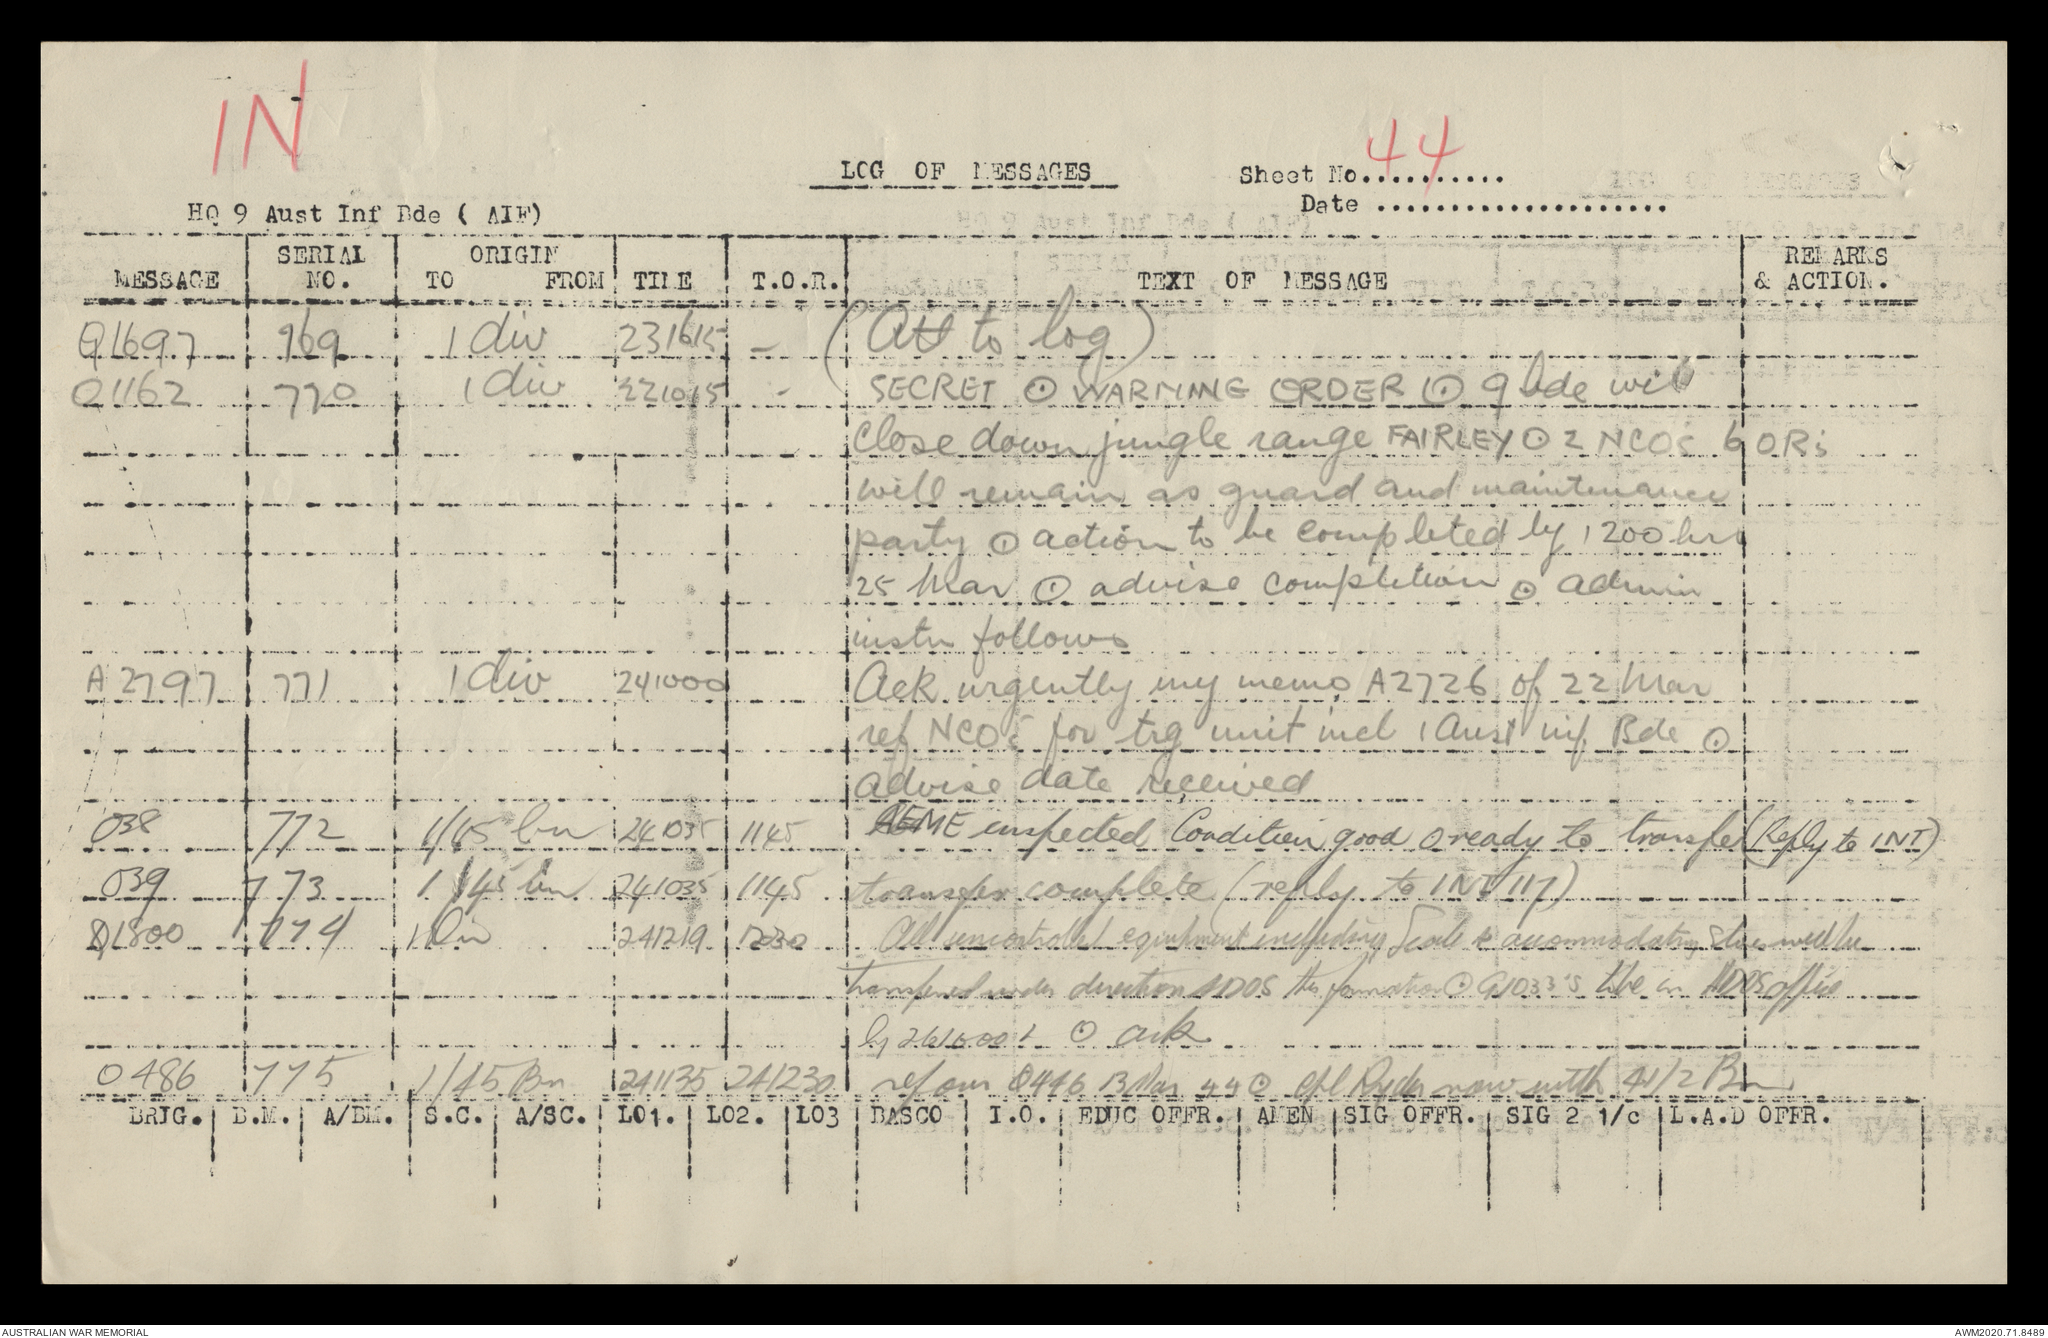 IN
LOG OF MESSAGES
Sheet No.......... 44
Date ....................
HQ 9 Aust Inf Bde ( AIF)
MESSAGE SERIAL NO. ORIGIN TO FROM TIME T.O.R. TEXT OF MESSAGE REMARKS & ACTION.
Q1697 969 1 div 231615 - (Att to log)
O1162 770 1 div 221015 - SECRET ⊙ WARNING ORDER ⊙ 9 bde will
close down jungle range FAIRLEY ⊙ 2 NCOs 6 ORs
will remain as guard and maintenance
party ⊙ action to be completed by 1200 hrs
25 Mar ⊙ advise completion ⊙ admin
instn follows
A2797 771 1 div 241000 Ack urgently my memo A2726 of 22 Mar
ref NCOs for trg unit incl 1 Aust inf Bde ⊙
advise date received
038 772 1/45 bn 241035 1145 inspected Condition good ⊙ ready to transfer (Reply to INT)
039 773 1/45 bn 241035 1145 transfer complete (reply to INT 117)
Q1800 774 1 Div 241219 1230 All uncontrolled equipment including accommodation stores will be
transferred under direction ADOS this formation ⊙ G1033's tbe in ADOS office
by 261000 ⊙ ack
O486 775 1/45 Bn 241135 241230 ref our O446 13 Mar 44 ⊙ Cpl Ryder now with 41/2 Bn
BRIG. B.M. A/BM. S.C. A/SC. LO1. LO2. LO3 BASCO I.O. EDUC OFFR. AMEN SIG OFFR. SIG 2 1/c L.A.D OFFR.
AUSTRALIAN WAR MEMORIAL
AWM2020.71.8489